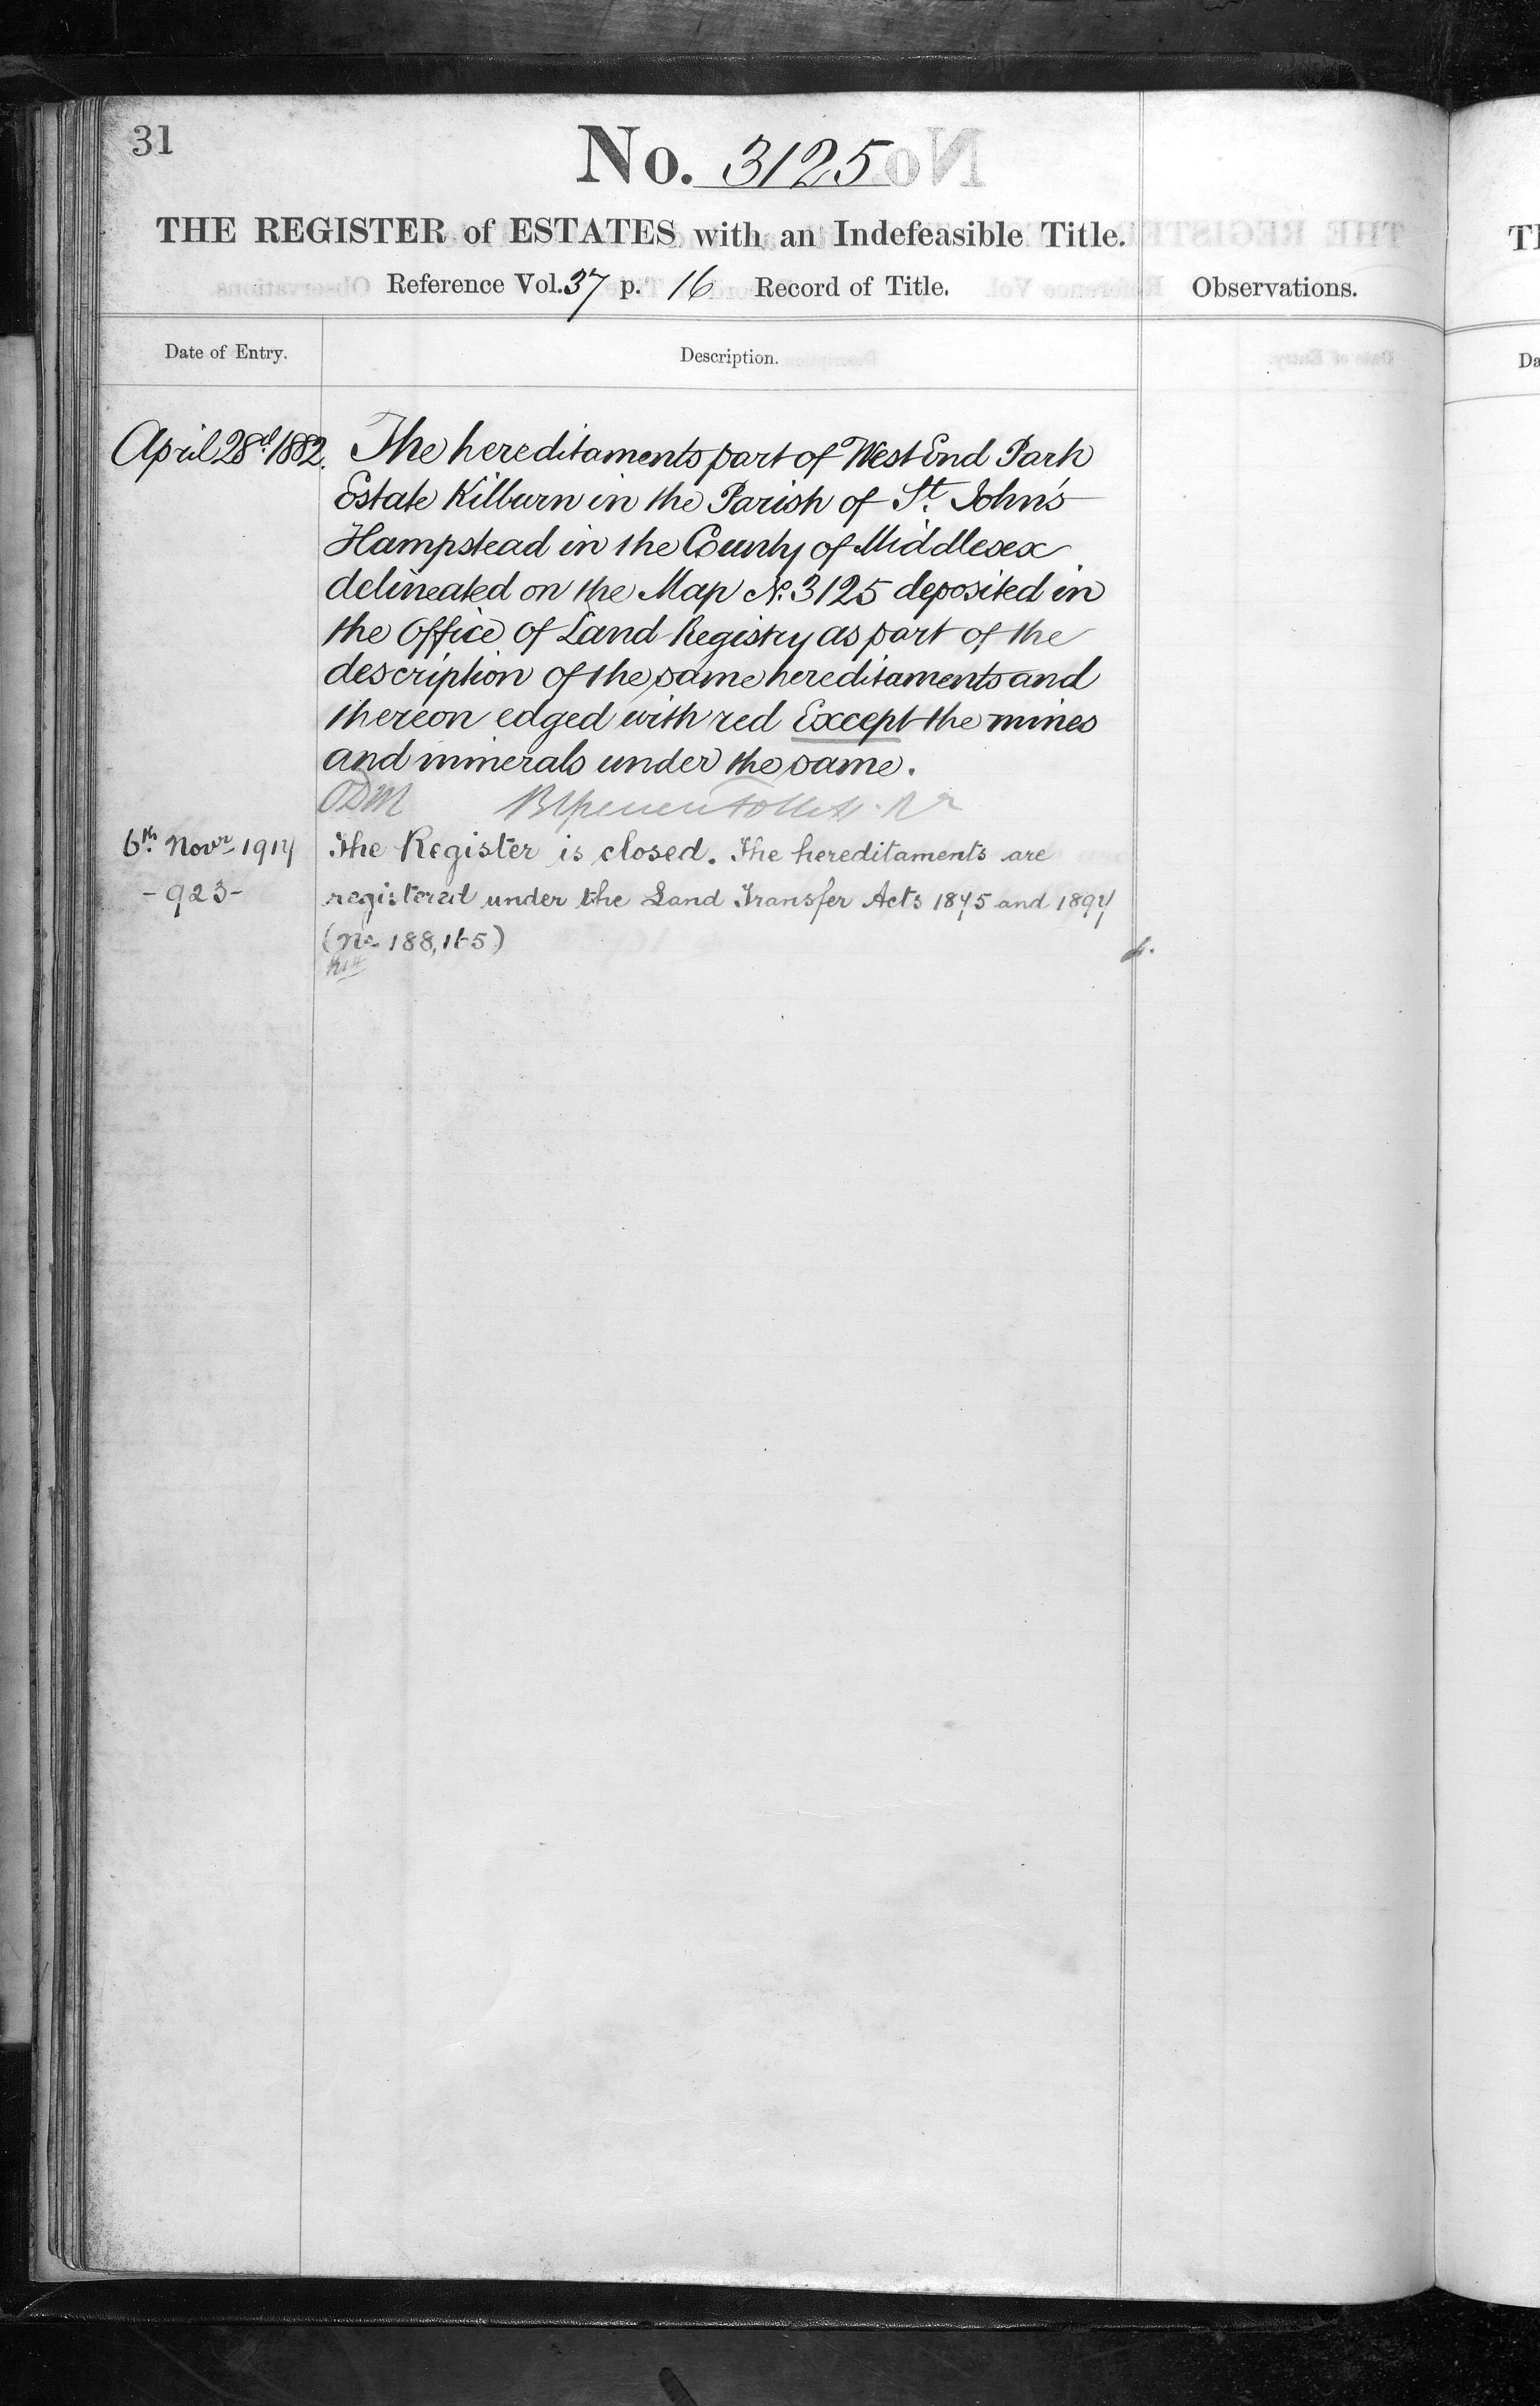 31
No. 3125
THE REGISTER of ESTATES with an Indefeasible Title.
Reference Vol. 37 p. 16 Record of Title.
Observations.
Date of Entry.
Description.
April 28th 1882. The hereditaments part of West End Park
Estate Kilburn in the Parish of St. John's
Hampstead in the County of Middlesex
delineated on the Map No. 3125 deposited in
the Office of Land Registry as part of the
description of the same hereditaments and
thereon edged with red Except the mines
and minerals under the same.
6th Novr 1917 The Register is closed. The hereditaments are
- 923 - registered under the Land Transfer Acts 1875 and 1897
(No. 188,165)